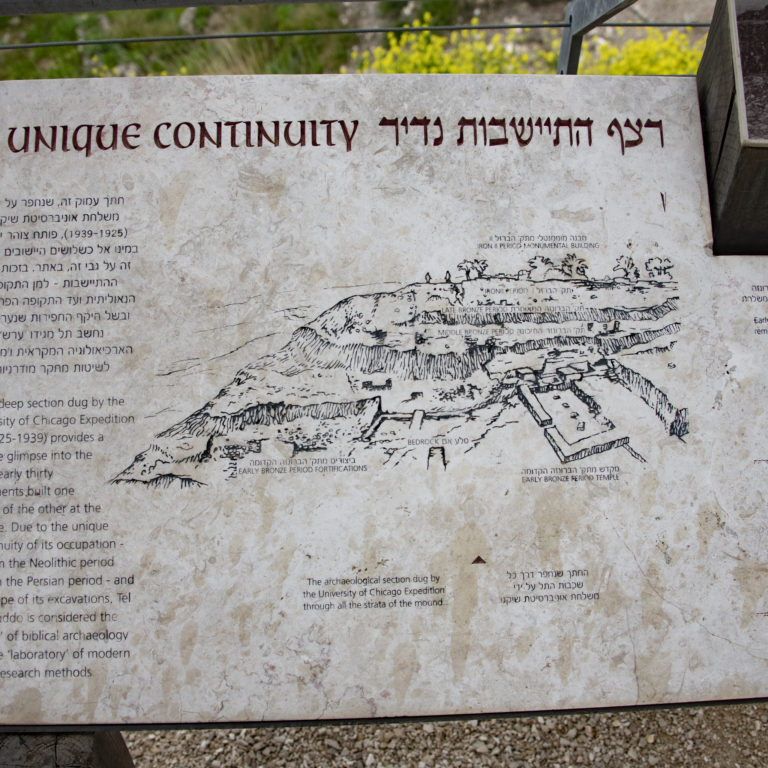 UNIQUE CONTINUITY רצף התיישבות נדיר
חתך עמוק זה, שנחפר על
משלחת אוניברסיטת שיקו
(1939-1925), פותח צוהר
במינו אל כשלושים היישובים
זה על גבי זה, באתר. בזכות
ההתיישבות - למן התקופ
הנאוליתית ועד התקופה הפר
ובשל היקף החפירות שנער
נחשב תל מגידו 'ערש
הארכיאולוגיה המקראית ו'מ
לשיטות מחקר מודרניות
deep section dug by the
sity of Chicago Expedition
25-1939) provides a
e glimpse into the
early thirty
ments built one
of the other at the
e. Due to the unique
nuity of its occupation -
n the Neolithic period
h the Persian period - and
pe of its excavations, Tel
ddo is considered the
' of biblical archaeology
e 'laboratory' of modern
esearch methods.
מבנה מונומנטלי מתק' הברזל II
IRON II PERIOD MONUMENTAL BUILDING
תק' הברזל I IRON I PERIOD
תק' הברונזה המאוחרת LATE BRONZE PERIOD
תק' הברונזה התיכונה MIDDLE BRONZE PERIOD
סלע אם BEDROCK
ביצורים מתק' הברונזה הקדומה
EARLY BRONZE PERIOD FORTIFICATIONS
מקדש מתק' הברונזה הקדומה
EARLY BRONZE PERIOD TEMPLE
The archaeological section dug by
the University of Chicago Expedition
through all the strata of the mound
החתך שנחפר דרך כל
שכבות התל על ידי
משלחת אוניברסיטת שיקגו